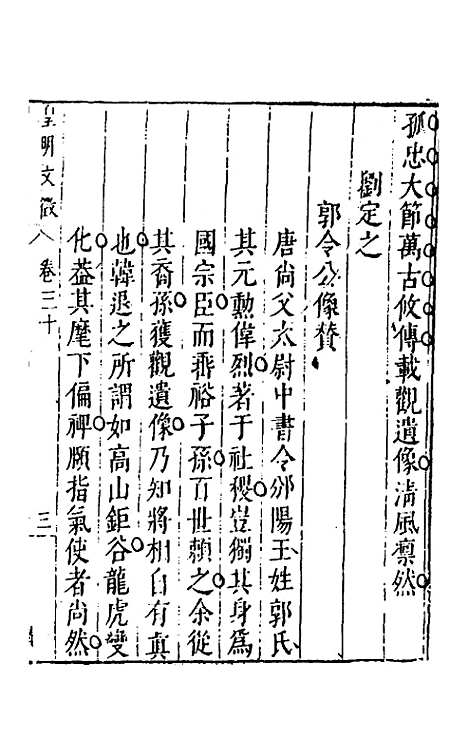 孤忠大節萬古攸傳載觀遺像淸風凛然
劉定之
郭令公像贊
唐尚父太尉中書令邠陽王姓郭氏
其元勳偉烈著于社稷豈獨其身爲
國宗臣而乖裕子孫百世賴之余從
其裔孫獲觀遺像乃知將相自有真
也韓退之所謂如高山鉅谷龍虎變
化葢其麾下偏裨頤指氣使者尚然
皇明文徵 卷三十 三